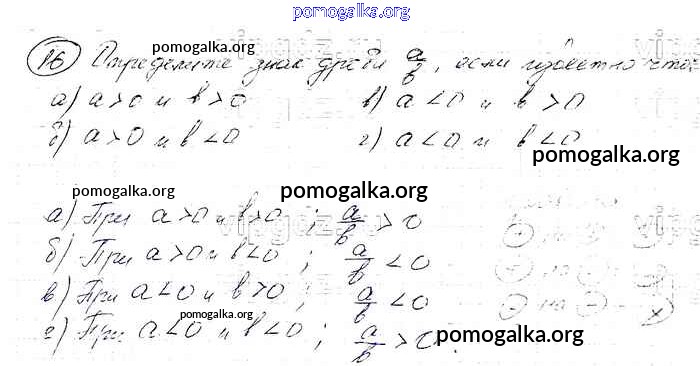 pomogalka.org
16 Определите знак дроби a/b, если известно что:
pomogalka.org
а) a>0 и b>0 в) a<0 и b>0
б) a>0 и b<0 г) a<0 и b<0
pomogalka.org
pomogalka.org pomogalka.org
а) При a>0 и b>0 ; a/b >0
б) При a>0 и b<0 ; a/b <0
в) При a<0 и b>0 ; a/b <0
pomogalka.org
г) При a<0 и b<0 ; a/b >0.
pomogalka.org